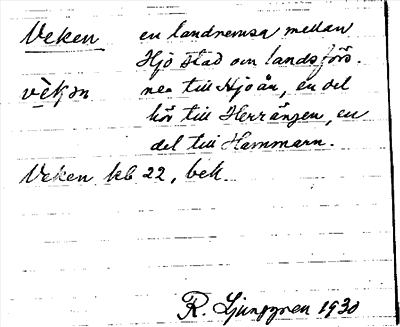 Veken en landremsa mellan
Hjo stad och landsförs.
vèkən nea till Hjoån, en del
hör till Herrängen, en
del till Hammarn.
Veken kb 22, bek.
R. Ljunggren 1930